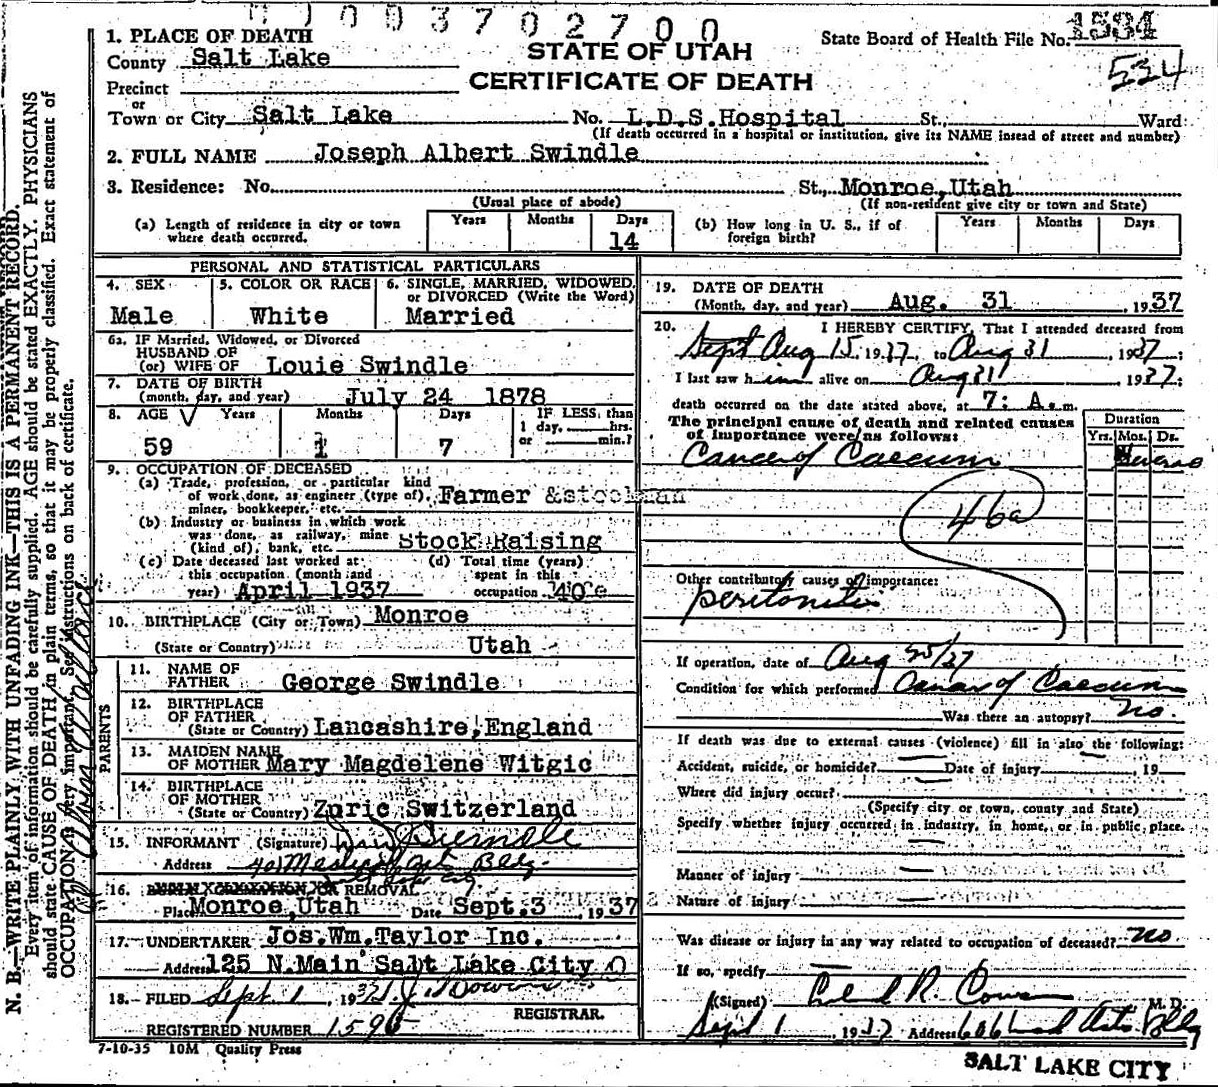 M 1 0 0 3 7 0 2 7 0 0
1. PLACE OF DEATH
State Board of Health File No. 1594
County Salt Lake
STATE OF UTAH
534
Precinct
CERTIFICATE OF DEATH
or
Town or City Salt Lake No. L.D.S.Hospital St., Ward
(If death occurred in a hospital or institution, give its NAME insead of street and number)
2. FULL NAME Joseph Albert Swindle
3. Residence: No. St., Monroe,Utah
(Usual place of abode) (If non-resident give city or town and State)
(a) Length of residence in city or town where death occurred. Years Months Days 14
(b) How long in U. S., if of foreign birth? Years Months Days
PERSONAL AND STATISTICAL PARTICULARS
4. SEX Male
5. COLOR OR RACE White
6. SINGLE, MARRIED, WIDOWED, or DIVORCED (Write the Word) Married
6a. IF Married, Widowed, or Divorced
HUSBAND OF
(or) WIFE OF Louie Swindle
7. DATE OF BIRTH
(month, day, and year) July 24 1878
8. AGE Years Months Days IF LESS, than
1 day, hrs.
59 1 7 or min.?
9. OCCUPATION OF DECEASED
(a) Trade, profession, or particular kind
of work done, as engineer (type of), Farmer &stockman
miner, bookkeeper, etc.
(b) Industry or business in which work
was done, as railway, mine
(kind of), bank, etc. Stock Raising
(c) Date deceased last worked at
this occupation (month and
year) April 1937
(d) Total time (years)
spent in this
occupation 40
10. BIRTHPLACE (City or Town) Monroe
(State or Country) Utah
PARENTS
11. NAME OF
FATHER George Swindle
12. BIRTHPLACE
OF FATHER
(State or Country) Lancashire,England
13. MAIDEN NAME
OF MOTHER Mary Magdelene Witgic
14. BIRTHPLACE
OF MOTHER
(State or Country) Zuric Switzerland
15. INFORMANT (Signature) Swindle
Address 401 Medical Art Bldg.
16. OR REMOVAL
Place Monroe,Utah Date Sept.3 1937
17. UNDERTAKER Jos.Wm.Taylor Inc.
Address 125 N.Main Salt Lake City
18. FILED Sept. 1, 1937
REGISTRAR.
REGISTERED NUMBER 1595
7-10-35 10M Quality Press
19. DATE OF DEATH
(Month, day, and year) Aug. 31 1937
20. I HEREBY CERTIFY, That I attended deceased from
Sept Aug 15 1937 to Aug 31, 1937;
I last saw him alive on Aug 31 1937;
death occurred on the date stated above, at 7: A. m.
The principal cause of death and related causes
of importance were as follows:
Duration
Yrs. Mos. Ds.
Cancer of Caecum
46a
Other contributory causes of importance:
peritonitis
If operation, date of Aug 25/37
Condition for which performed Cancer of Caecum
Was there an autopsy? No.
If death was due to external causes (violence) fill in also the following:
Accident, suicide, or homicide? Date of injury, 19
Where did injury occur?
(Specify city or town, county and State)
Specify whether injury occurred in industry, in home, or in public place.
Manner of injury
Nature of injury
Was disease or injury in any way related to occupation of deceased? No
If so, specify
(Signed) R. M. D.
Sept 1 1937 Address 606 Med Arts Bldg
SALT LAKE CITY
N. B.—WRITE PLAINLY, WITH UNFADING INK—THIS IS A PERMANENT RECORD.
Every item of information should be carefully supplied. AGE should be stated EXACTLY. PHYSICIANS
should state CAUSE OF DEATH in plain terms, so that it may be properly classified. Exact statement of
OCCUPATION is very important. See instructions on back of certificate.